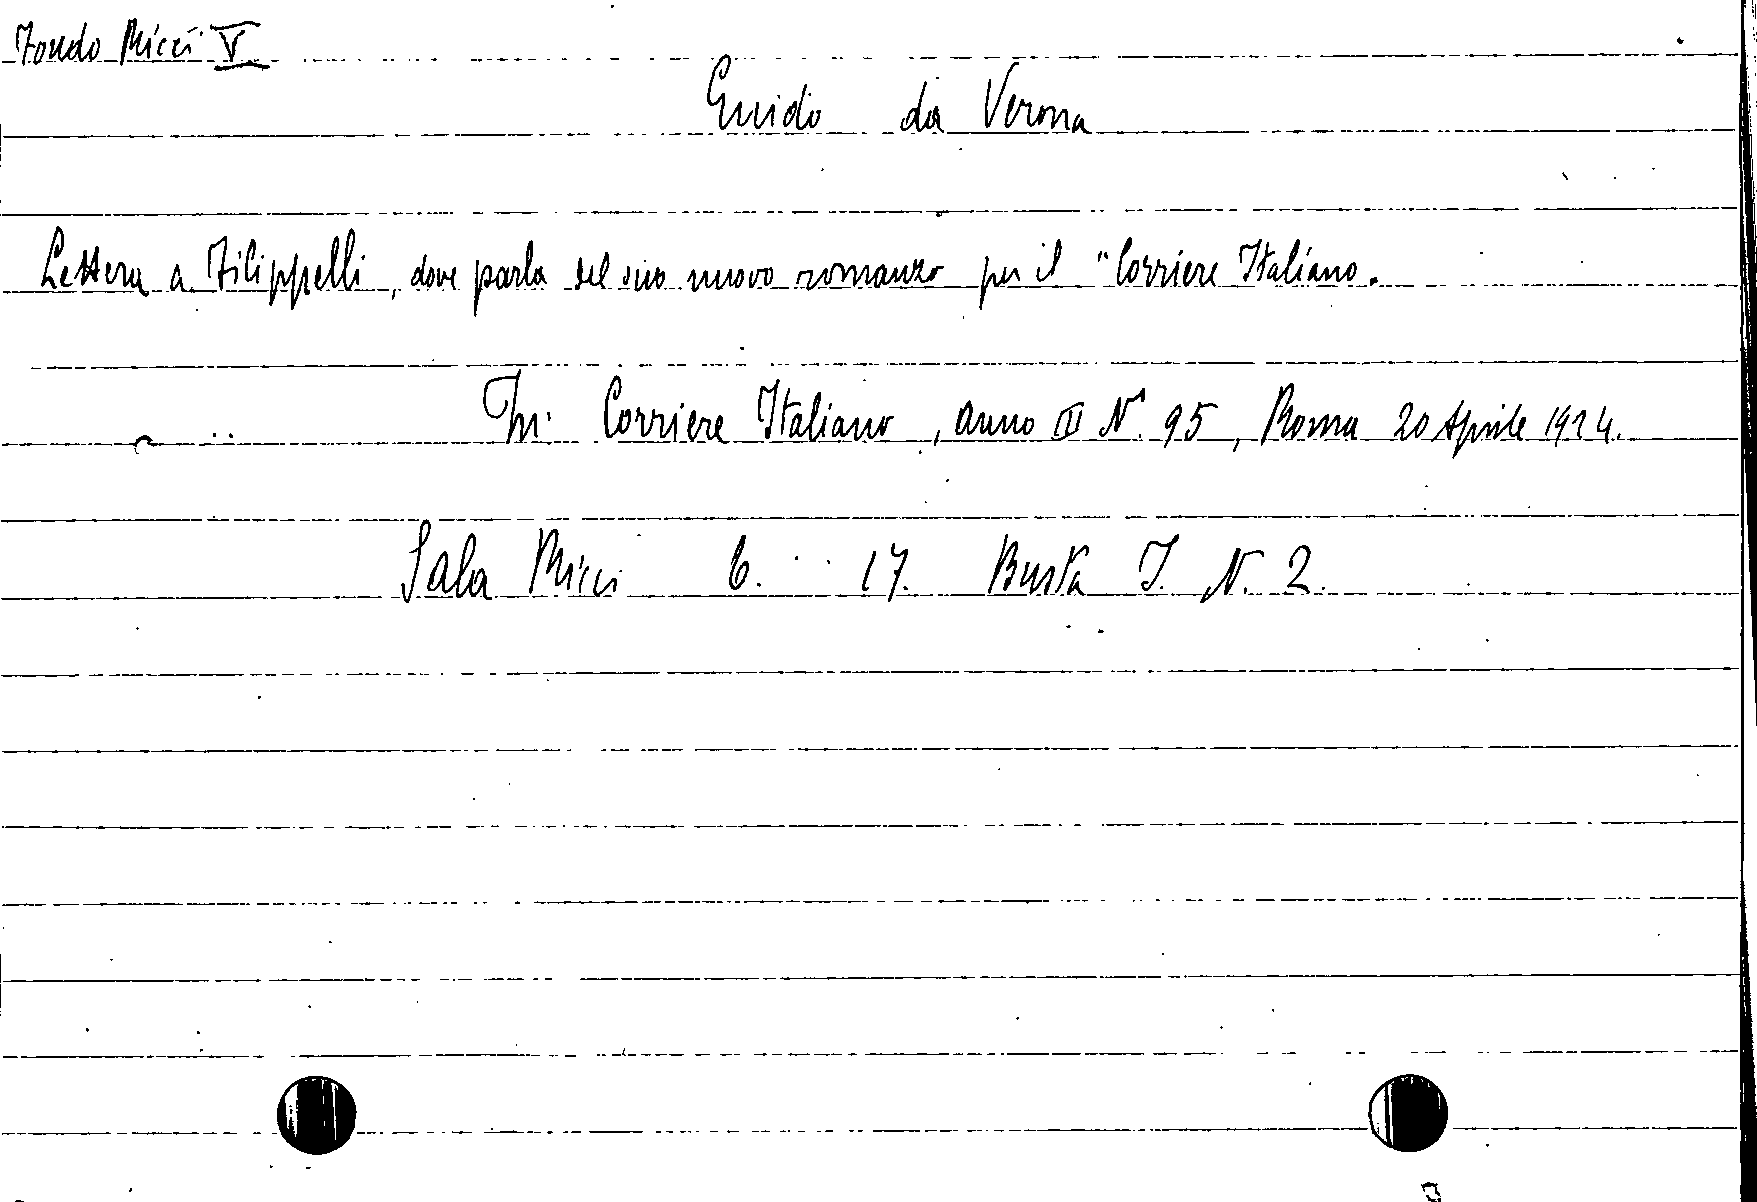 Fondo Ricci V
Guido da Verona
Lettera a Filippelli, dove parla del suo nuovo romanzo per il "Corriere Italiano.
In: Corriere Italiano, anno II N. 95, Roma 20 Aprile 1924.
Sala Ricci 6. 17. Busta I. N. 2.